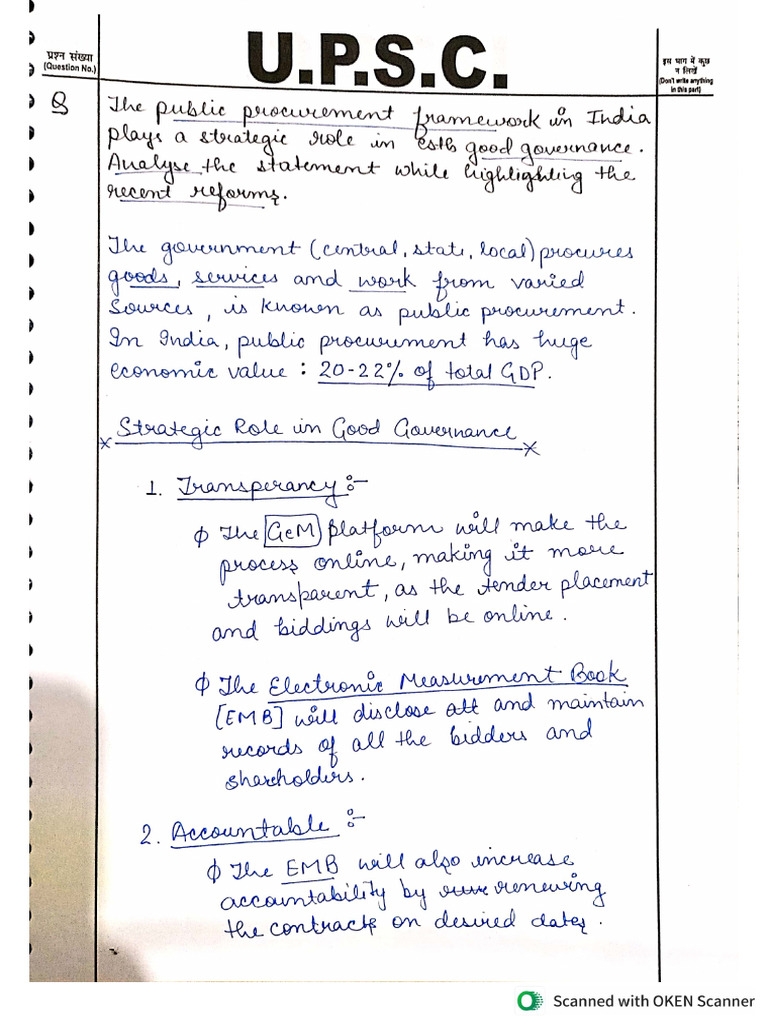 प्रश्न संख्या
(Question No.)
U.P.S.C.
इस भाग में कुछ
न लिखें
(Don't write anything
in this part)
Q
The public procurement framework in India
plays a strategic role in estb good governance.
Analyse the statement while highlighting the
recent reforms.
The government (central, state, local) procures
goods, services and work from varied
sources, is known as public procurement.
In India, public procurement has huge
economic value : 20-22% of total GDP.
Strategic Role in Good Governance
1. Transperancy :-
The GeM platform will make the
process online, making it more
transparent, as the tender placement
and biddings will be online.
The Electronic Measurement Book
[EMB] will disclose all and maintain
records of all the bidders and
shareholders.
2. Accountable :-
The EMB will also increase
accountability by renewing
the contracts on desired dates.
Scanned with OKEN Scanner